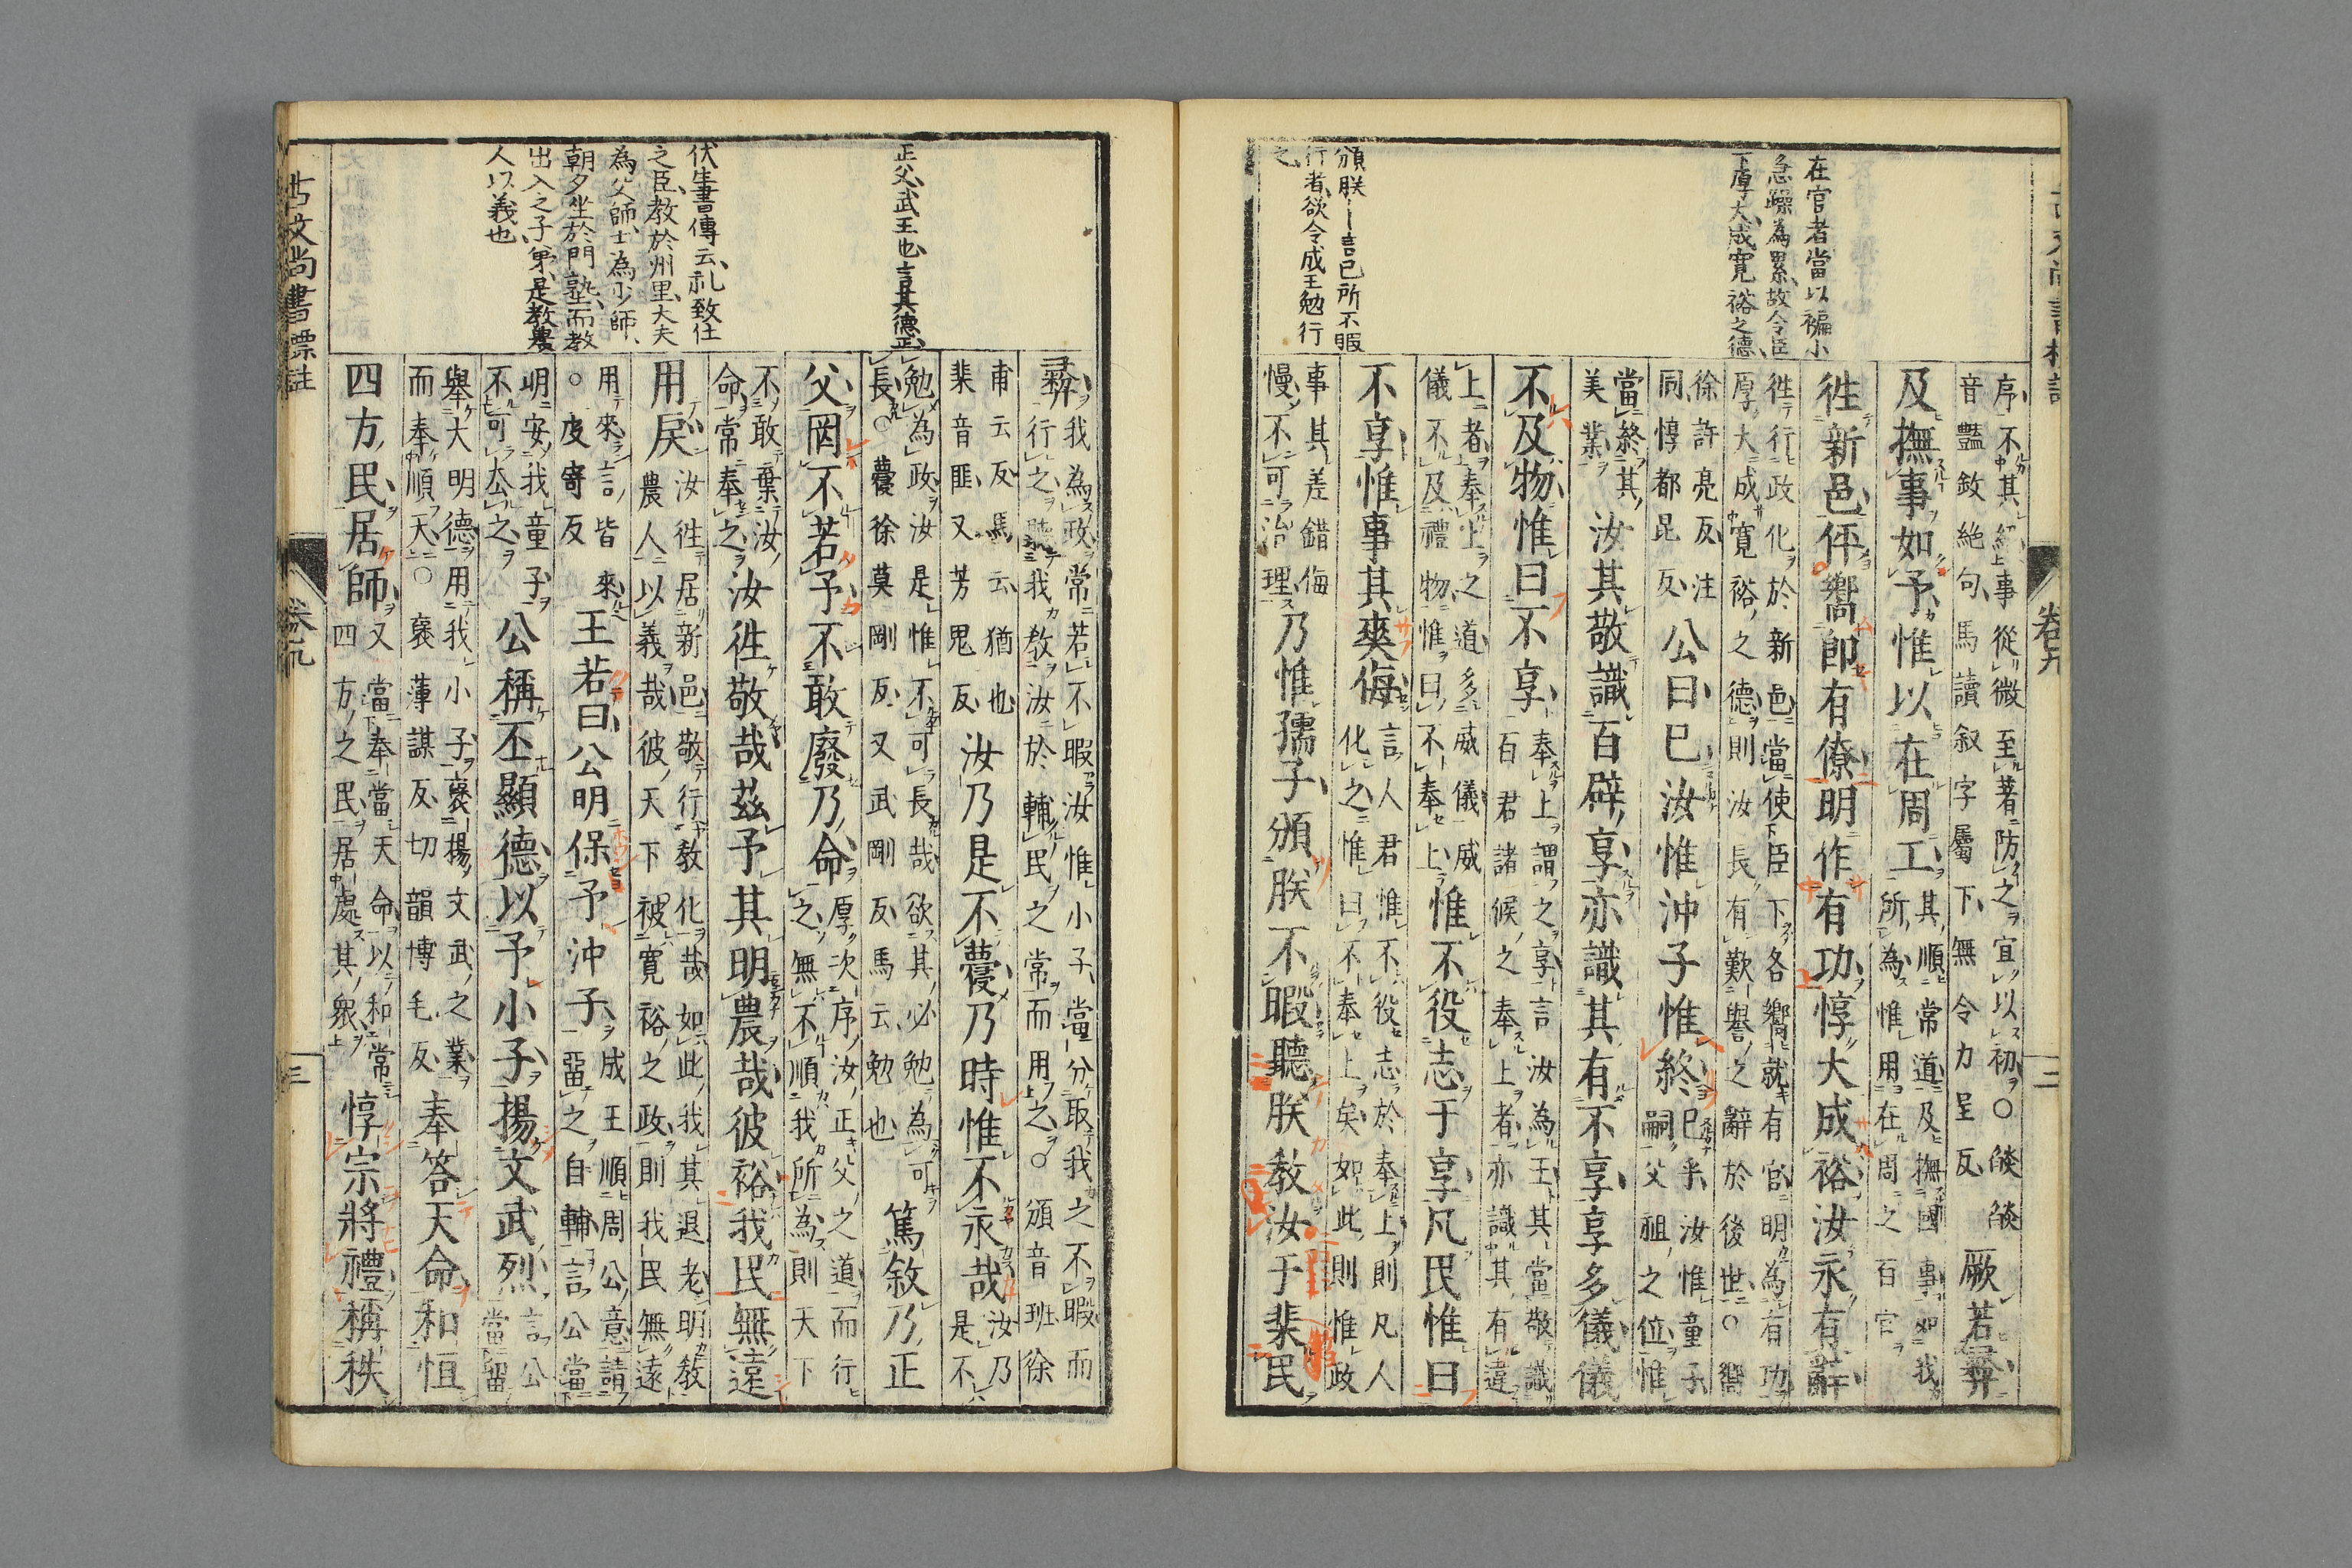 在官者當以褊小
急躁為累故令臣
下厚大成寬裕之德
頒朕｜言已所不暇
行者欲令成王勉行
之
序不其絕事從微至著防之宜以初○燄燄
音豔敘絕句馬讀叙字屬下無令力呈反
厥若彝
及撫事如予惟以在周工
其順常道及撫國事如我
所為惟用在周之百官
往新邑伻嚮即有僚明作有功惇大成裕汝永有辭
往行政化於新邑當使臣下各嚮就有官明為有功
厚大成寬裕之德則汝長有歎譽之辭於後世○嚮
徐許亮反注
同惇都昆反
公曰已汝惟沖子惟終
已乎汝惟童子
嗣父祖之位惟
當終其
美業
汝其敬識百辟享亦識其有不享享多儀儀
不及物惟曰不享
奉上謂之享言汝為王其當敬識
百君諸候之奉上者亦識其有違
上者奉上之道多威儀威
儀不及禮物惟曰不奉上
惟不役志于享凡民惟曰
不享惟事其爽侮
言人君惟不役志於奉上則凡人
化之惟曰不奉上矣如此則惟政
事其差錯侮
慢不可治理
乃惟孺子頒朕不暇聽朕教汝于棐民
卷九
正父武王也言其德正
伏生書傳云礼致仕
之臣教於州里大夫
為父師士為少師
朝夕坐於門塾而教
出入之子弟是教農
人以義也
彝
我為政常若不暇汝惟小子當分取我之不暇而
行之聽我教汝於輔民之常而用之○頒音班徐
甫云反馬云猶也
棐音匪又芳鬼反
汝乃是不蘉乃時惟不永哉
汝乃
是不
勉為政汝是惟不可長哉欲其必勉為可
長○蘉徐莫剛反又武剛反馬云勉也
篤敘乃正
父罔不若予不敢廢乃命
厚次序汝正父之道而行
之無不順我所為則天下
不敢棄汝
命常奉之
汝往敬哉茲予其明農哉彼裕我民無遠
用戾
汝往居新邑敬行教化哉如此我其退老明教
農人以義哉彼天下被寬裕之政則我民無遠
用來言皆來
○皮寄反
王若曰公明保予沖子
成王順周公意請
之自輔言公當
明安我童子
不可去之
公稱丕顯德以予小子揚文武烈
言公
當留
舉大明德用我小子襃揚文武之業
而奉順天○襃薄謀反切韻博毛反
奉答天命和恒
四方民居師
又當奉當天命以和常
四方之民居處其衆
惇宗將禮稱秩
古文尚書標註
卷九
三